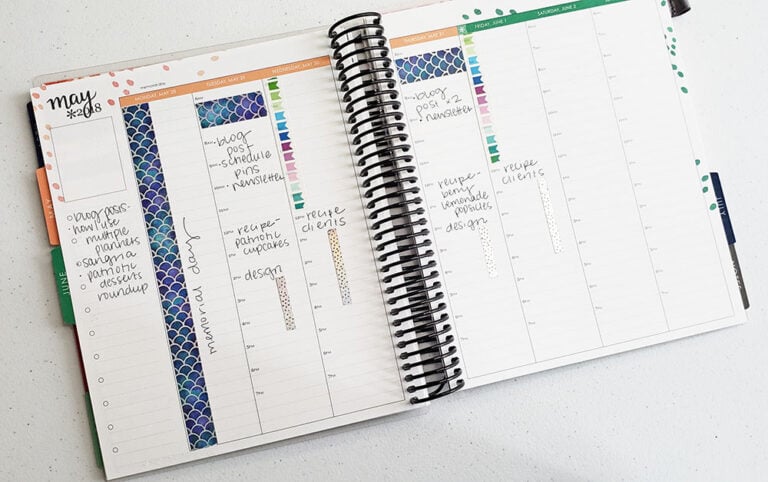 may
*2018
MONDAY, MAY 28
TUESDAY, MAY 29
WEDNESDAY, MAY 30
THURSDAY, MAY 31
FRIDAY, JUNE 1
SATURDAY, JUNE 2
MAY
JUNE
JULY
blog posts-
how I use
multiple
planners
sangria
patriotic
desserts
roundup
memorial day
blog
post
schedule
pins
newsletter
recipe-
patriotic
cupcakes
design
recipe
clients
blog
post x2
newsletter
recipe-
berry
lemonade
popsicles
design
recipe
clients